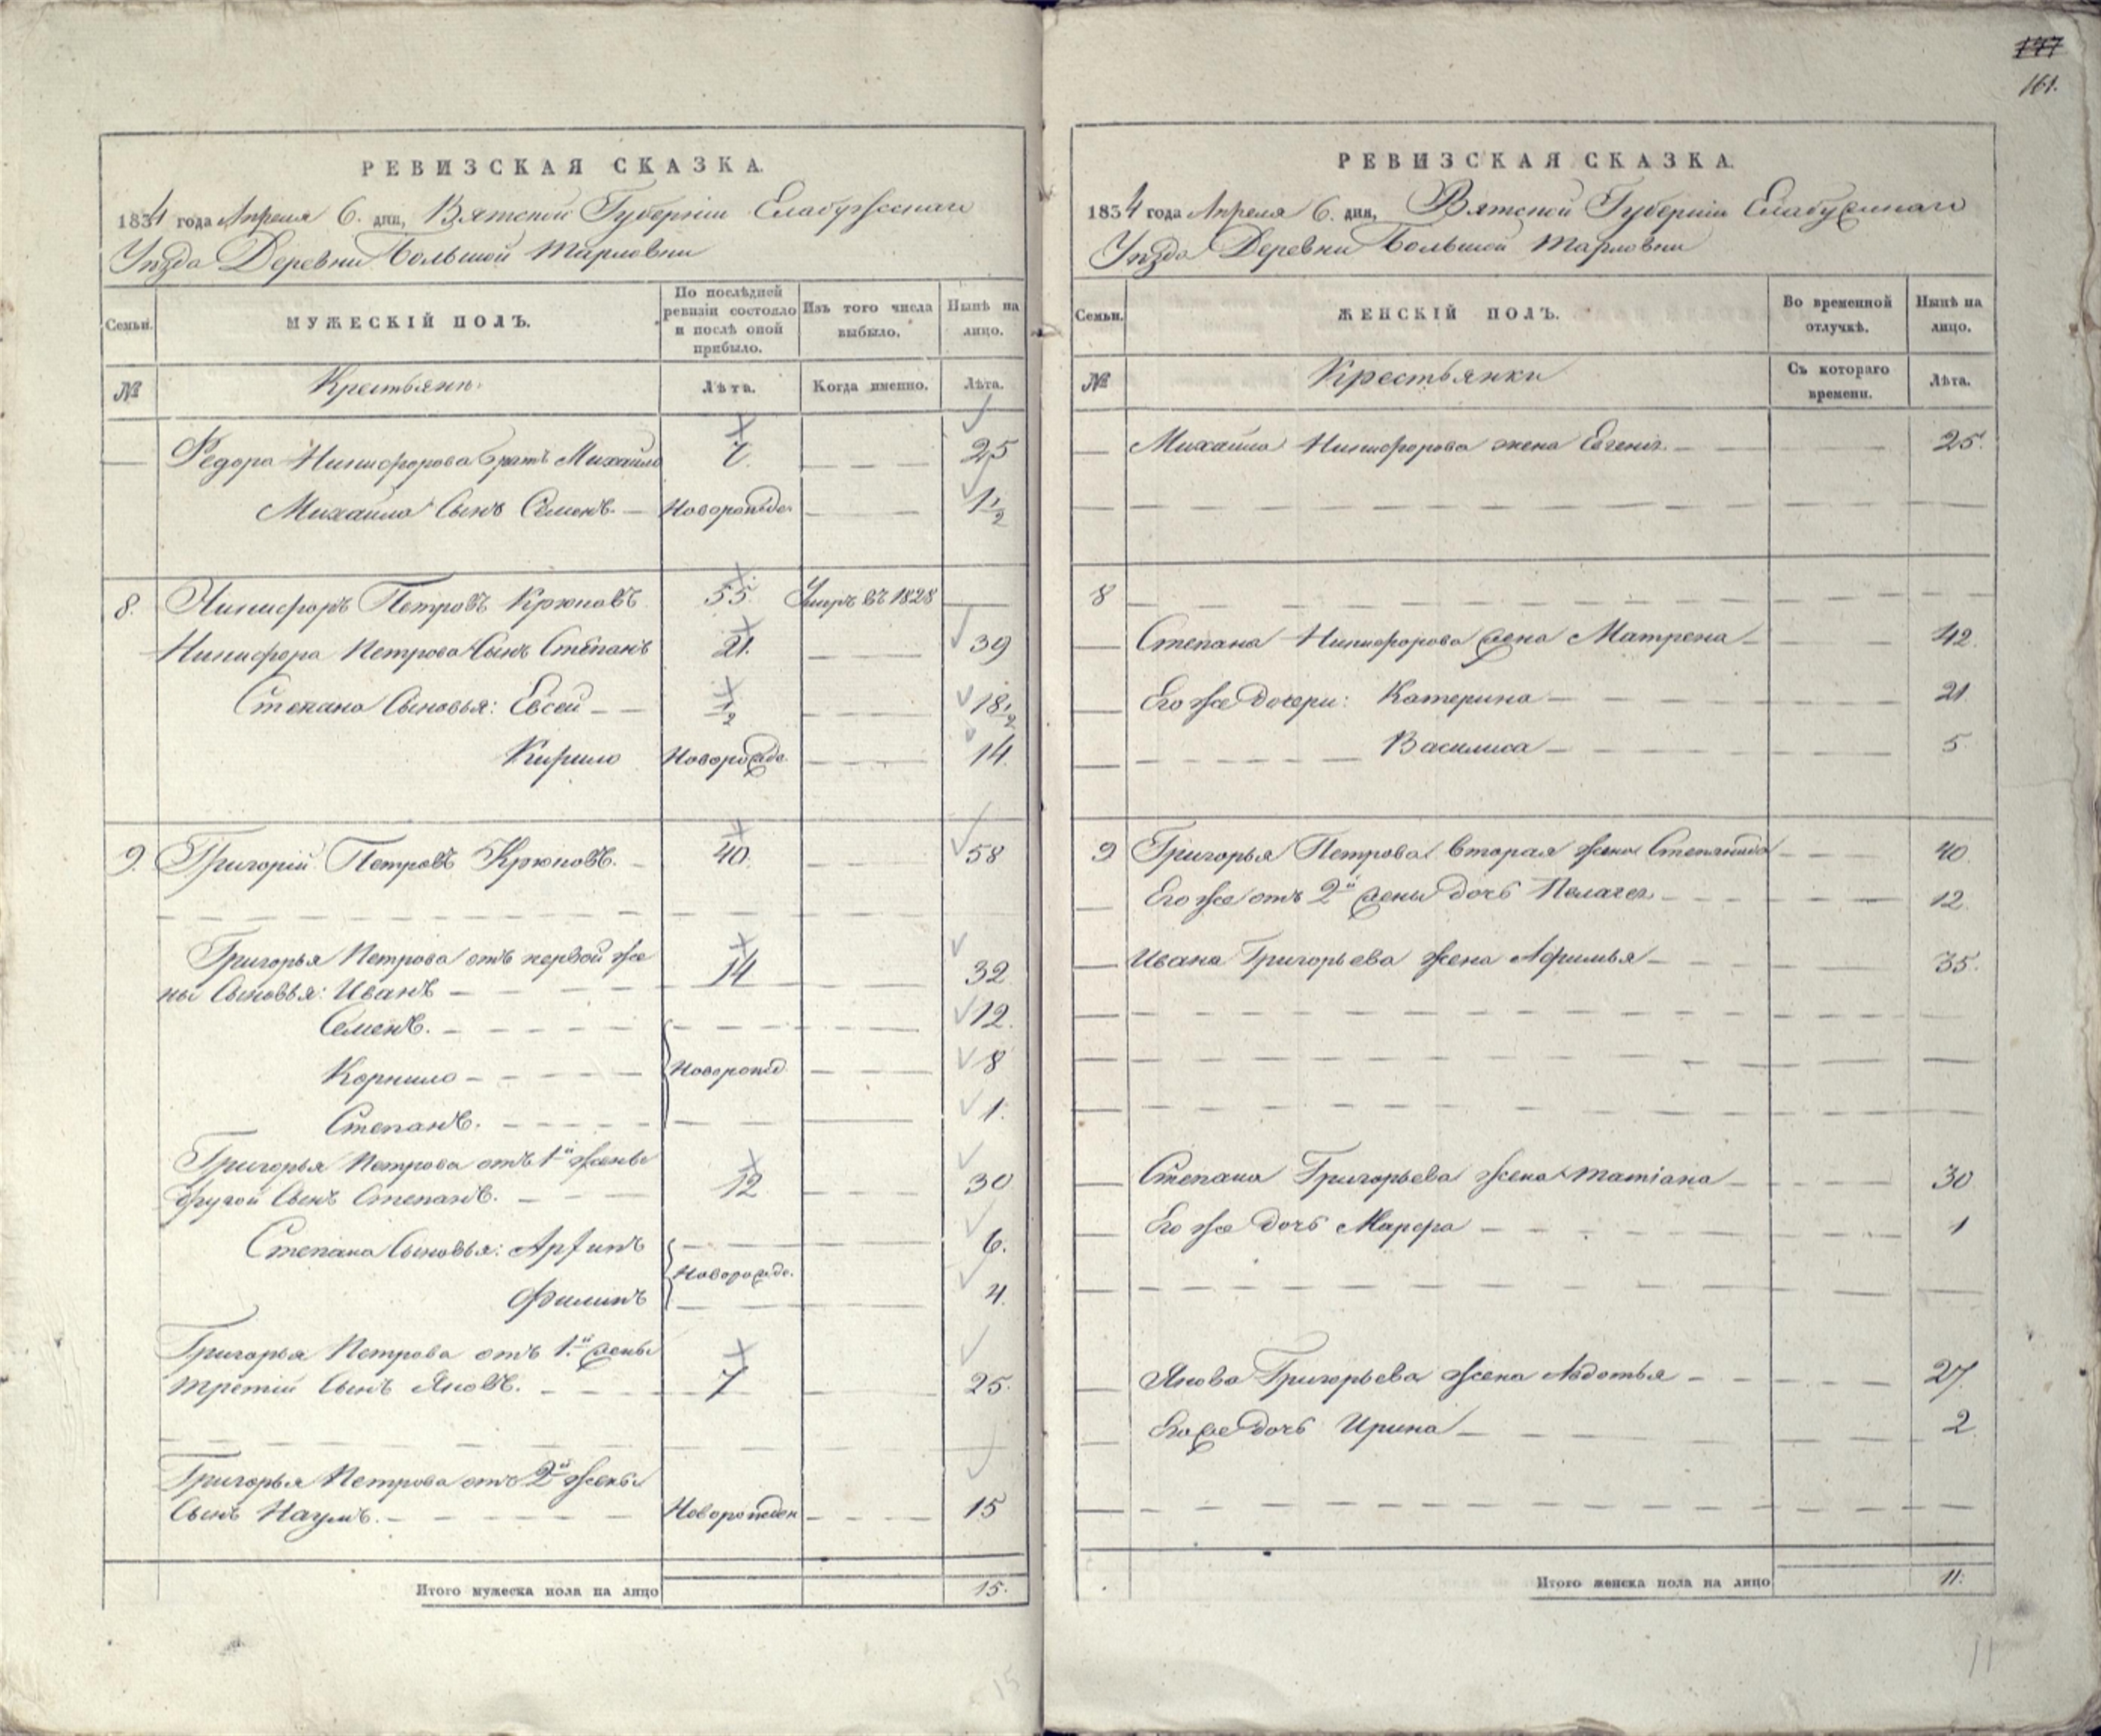 РЕВИЗСКАЯ СКАЗКА.
1834 года Апреля 6. дня, Вятской Губерніи Елабужскаго
Уѣзда Деревни Большой
Семьи.
МУЖЕСКІЙ ПОЛЪ.
По послѣдней ревизіи состояло и послѣ оной прибыло.
Изъ того числа выбыло.
Нынѣ на лицо.
№
Крестьяне.
Лѣта.
Когда именно.
Лѣта.
Федора Никифорова братъ Михайло 7. 25
Михайла Сынъ Семенъ. Новорожде. 1 1/2
8. Никифоръ Петровъ Крюковъ 55. Умръ въ 1828
Никифора Петрова Сынъ Степанъ 21. 39
Степана Сыновья: Евсей 1/2 18 1/2
Кирило Новорожде. 14.
9. Григорій Петровъ Крюковъ. 40. 58
Григорья Петрова отъ первой же
ны Сыновья: Иванъ 14 32
Семенъ. 12.
Корнило Новорожд. 8
Степанъ. 1.
Григорья Петрова отъ 1й жены
другой Сынъ Степанъ. 12 30
Степана Сыновья: Архипъ 6.
Новорожде.
Филипъ 4.
Григорья Петрова отъ 1.й жены
третій Сынъ Яковъ. 7 25.
Григорья Петрова отъ 2й жены
Сынъ Наумъ. Новорожден 15
Итого мужеска пола на лицо 15.
15
147
161.
РЕВИЗСКАЯ СКАЗКА.
1834 года Апреля 6. дня, Вятской Губерніи Елабужскаго
Уѣзда Деревни Большой
Семьи.
ЖЕНСКІЙ ПОЛЪ.
Во временной отлучкѣ.
Нынѣ на лицо.
№
Крестьянки
Съ котораго времени.
Лѣта.
Михайла Никифорова жена Евгенія 25.
8
Степана Никифорова жена Матрена 42.
Его же дочери: Катерина 21
Василиса 5.
9 Григорья Петрова вторая жена Степанида 40.
Его же отъ 2й жены дочь Пелагея 12.
Ивана Григорьева жена Афимья 35.
Степана Григорьева жена Татіана 30
Его же дочь Марфа 1
Якова Григорьева жена Авдотья 27.
Его же дочь Ирина 2
Итого женска пола на лицо 11.
11